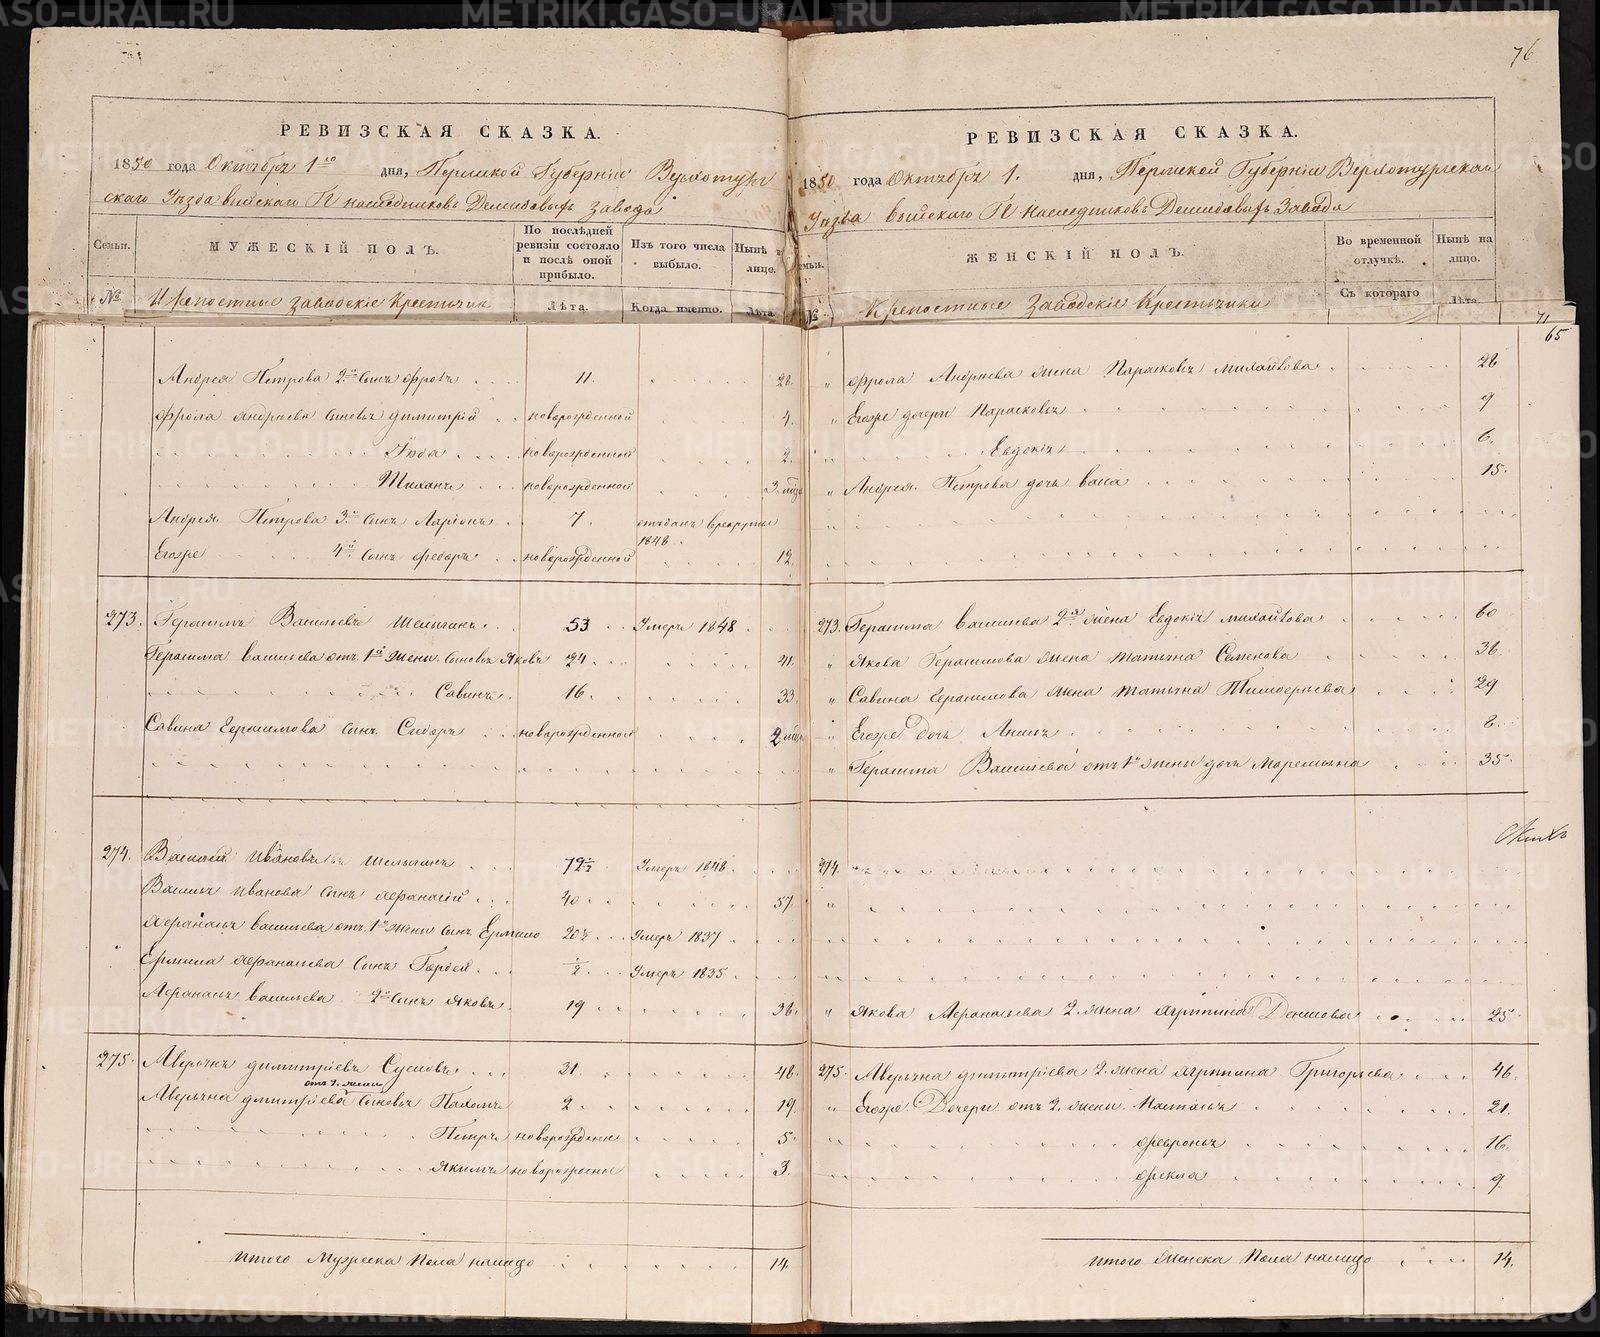 76
РЕВИЗСКАЯ СКАЗКА.
1850 года Октября 1го дня, Пермской Губернии Верхотур
скаго Уезда Выйскаго Гг наследниковъ Демидовыхъ завода
Семьи.
МУЖЕСКІЙ ПОЛЪ.
По послѣдней ревизіи состояло и послѣ оной прибыло.
Изъ того числа выбыло.
Нынѣ въ лицо.
№
Крепостные заводскіе Крестьяне
Лѣта.
Когда именно.
Лѣта.
Андрея Петрова 2й сынъ Фролъ 11. 28.
Фрола Андреева сыновья Димитрій новорожденной 4.
новорожденной 2.
Тихонъ новорожденной 3. мѣс
Андрея Петрова 3й сынъ Ларіонъ 7. отъданъ в рекруты 1848
Егоже 4й сынъ Федоръ новорожденной 12.
273. Герасимъ Васильевъ Шелыгинъ 53 Умеръ 1848
Герасима Васильева отъ 1й жены сыновья Яковъ 24 41.
Савинъ 16. 33.
Савина Герасимова сынъ Сидоръ новорожденной 2 мѣс
274. Василій Ивановъ Шелыгинъ 72½ Умеръ 1848
Василья Иванова сынъ Афанасій 40 57.
Афанасья Васильева отъ 1й жены сынъ Ермило 20½ Умеръ 1837
Ермила Афанасьева сынъ Гордей ½ Умеръ 1835
Афанасья Васильева 2й сынъ Яковъ 19 36.
275. Аверьянъ Димитріевъ Сусловъ 31 48.
отъ 1. жены
Аверьяна Дмитріева сыновья Пахомъ 2 19
Петръ новорожден 5.
Якимъ новорожден 3.
итого Мужеска Пола налицо 14
РЕВИЗСКАЯ СКАЗКА.
1850 года Октября 1. дня, Пермской Губерніи Верхотурскаго
Уезда Выйскаго Гг наследниковъ Демидовыхъ Завода
семьи.
ЖЕНСКІЙ ПОЛЪ.
Во временной отлучкѣ.
Нынѣ на лицо.
№
Крепостные Заводскіе Крестьянки
Съ котораго
Лѣта.
71
65
Фрола Андреева жена Парасковья Михайлова 28
Егоже дочери Парасковья 9
Евдокія 6.
Андрея Петрова дочь Васа 15.
273. Герасима Васильева 2я жена Евдокія Михайлова 60
Якова Герасимова жена Татьяна Семенова 36.
Савина Герасимова жена Татьяна Тимофеева 29
Егоже Дочь Анисья 8.
Герасима Васильева отъ 1й жены дочь Маремьяна 35.
274.
Якова Афанасьева 2. жена Агрипина Денисова 25
275. Аверьяна Димитріева 2. жена Агрипина Григорьева 46.
Егоже Дочери отъ 2. жены Настасья 21.
Февронья 16.
Фекла 9
итого Женска Пола налицо 14.